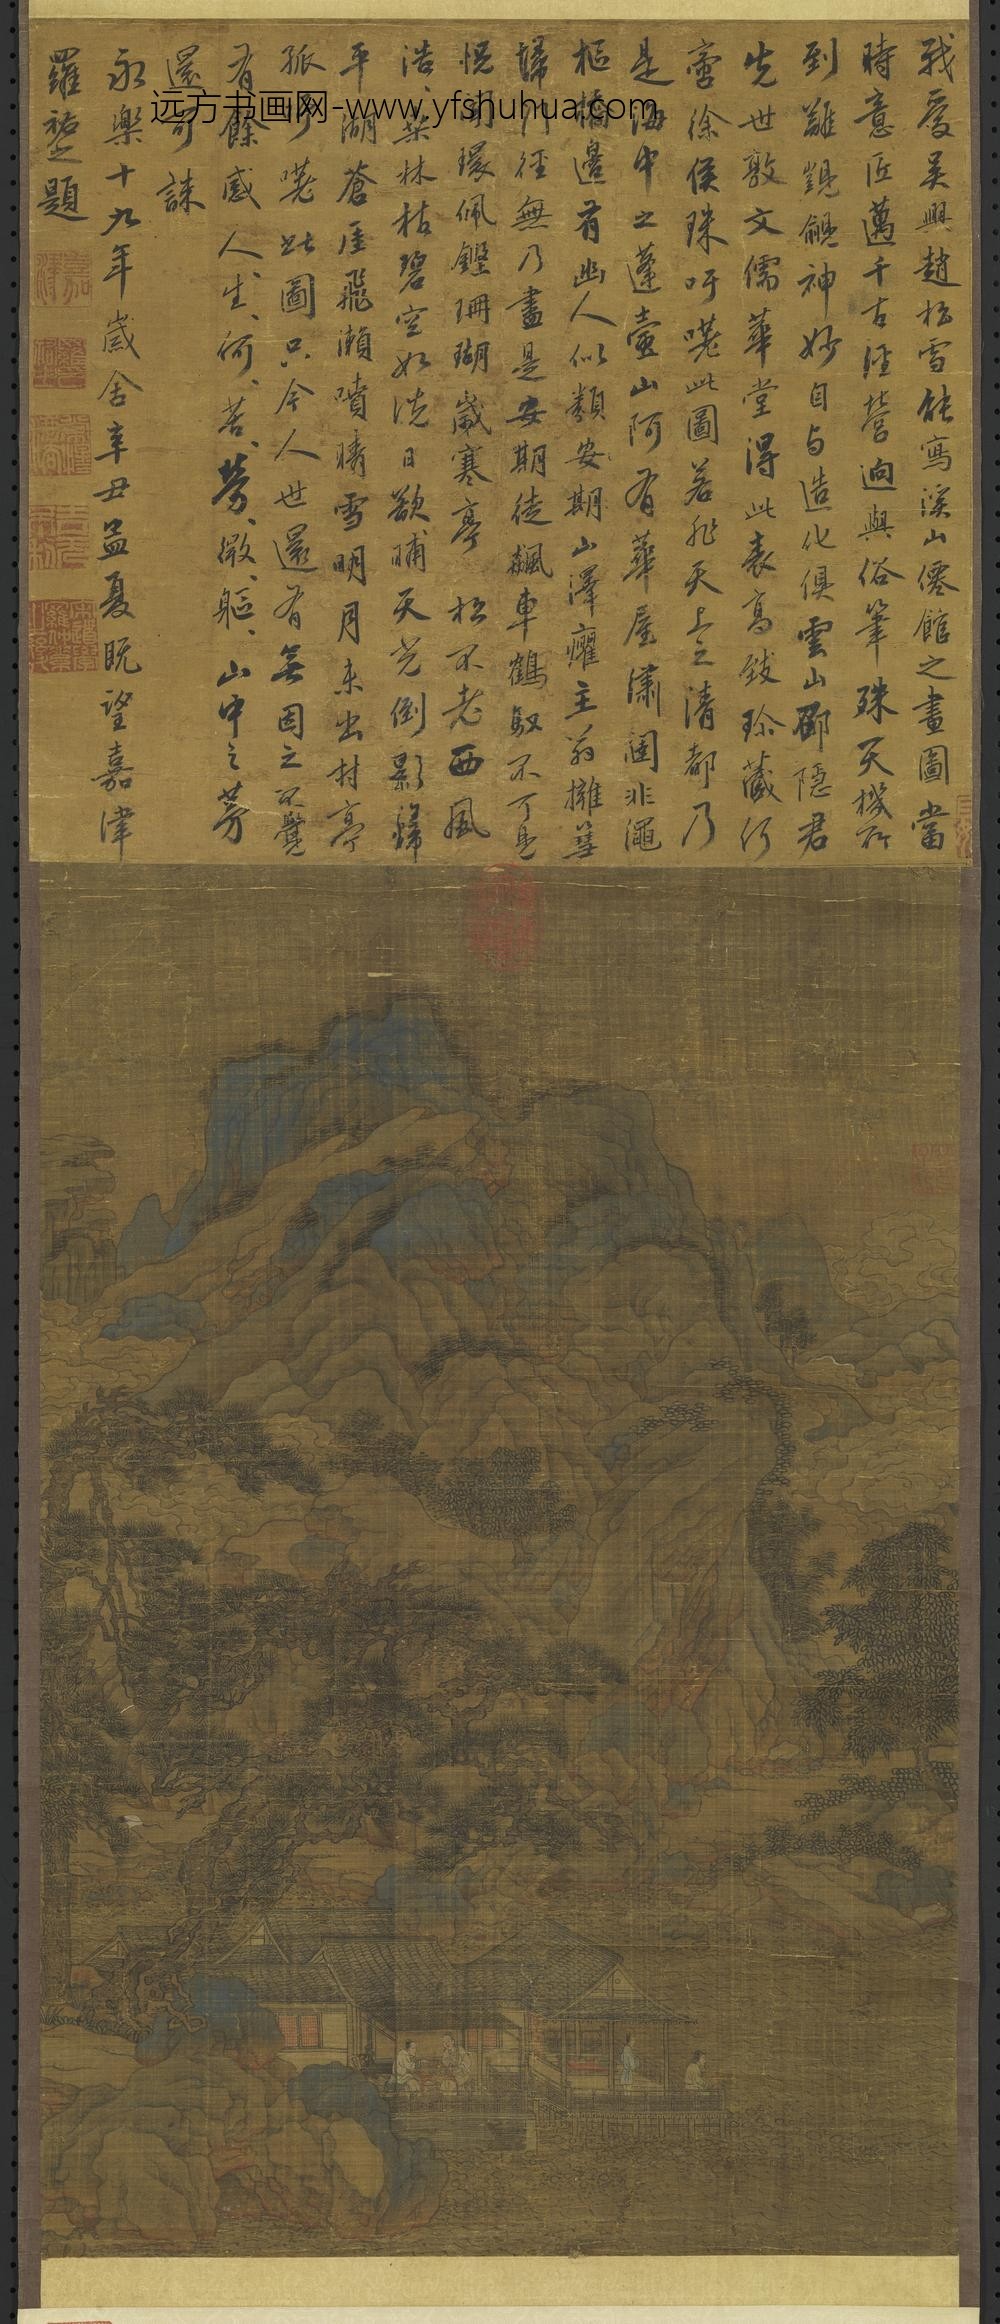 我愛吳興趙松雪能寫溪山僊館之畫圖當
時意匠邁千古經營迥與俗筆殊天機所
到難覬覦神妙自与造化俱雲山鄒隱君
先世敦文儒華堂得此表高致珍藏何
啻徐侯珠吁嗟此圖若非天上之清都乃
是海中之蓬壷山阿有華屋瀟闥非濁
樞橋邊有幽人似類安期山澤癯主翁擁篲
歸行徑無乃盡是安期徒飆車鶴馭不可見
恍聞環佩鏗珊瑚歲寒亭松不老西風
浩、柴林枯碧空如洗日欲晡天光倒影歸
平湖蒼崖飛瀨噴晴雪明月未出村亭
孤吁嗟此圖只今人世還有無因之不覺
有餘感人生何、苦、勞、微軀、山中之芳
還可誅
永樂十九年歲舍辛丑孟夏既望嘉津
羅 題
远方书画网-www.yfshuhua.com